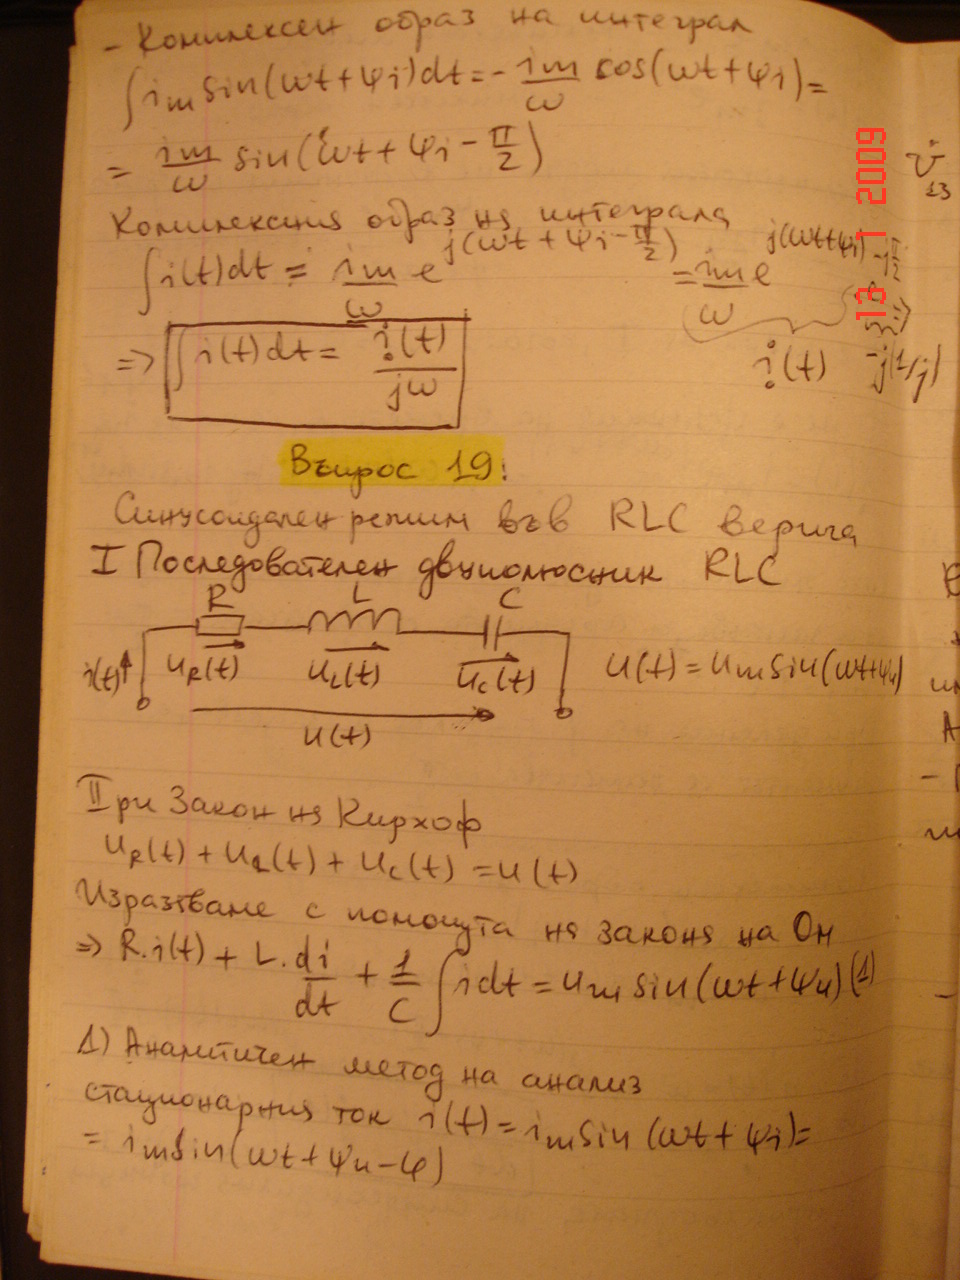 - Комплексен образ на интеграл
∫ i_m sin(ωt+ψi)dt = - i_m/ω cos(ωt+ψi) =
= i_m/ω sin(ωt+ψi - π/2)
Комплексния образ на интеграла
∫ i(t)dt = i_m/ω e^j(ωt+ψi-π/2) = i_m/ω e^j(ωt+ψi) e^-jπ/2 =>
i(t) -j(1/j)
=> ∫ i(t)dt = i(t)/jω
Въпрос 19:
Синусоидален режим във RLC верига
I Последователен двуполюсник RLC
R L C
i(t) u_R(t) u_L(t) u_C(t) u(t) = u_m sin(ωt+ψu)
u(t)
II ри Закон на Кирхоф
u_R(t) + u_L(t) + u_C(t) = u(t)
Изразяваме с помощта на закона на Ом
=> R.i(t) + L.di/dt + 1/C ∫ idt = u_m sin(ωt+ψu) (1)
1) Аналитичен метод на анализ
стационарния ток i(t) = i_m sin(ωt+ψi) =
= i_m sin(ωt+ψu-φ)
13 1 2009